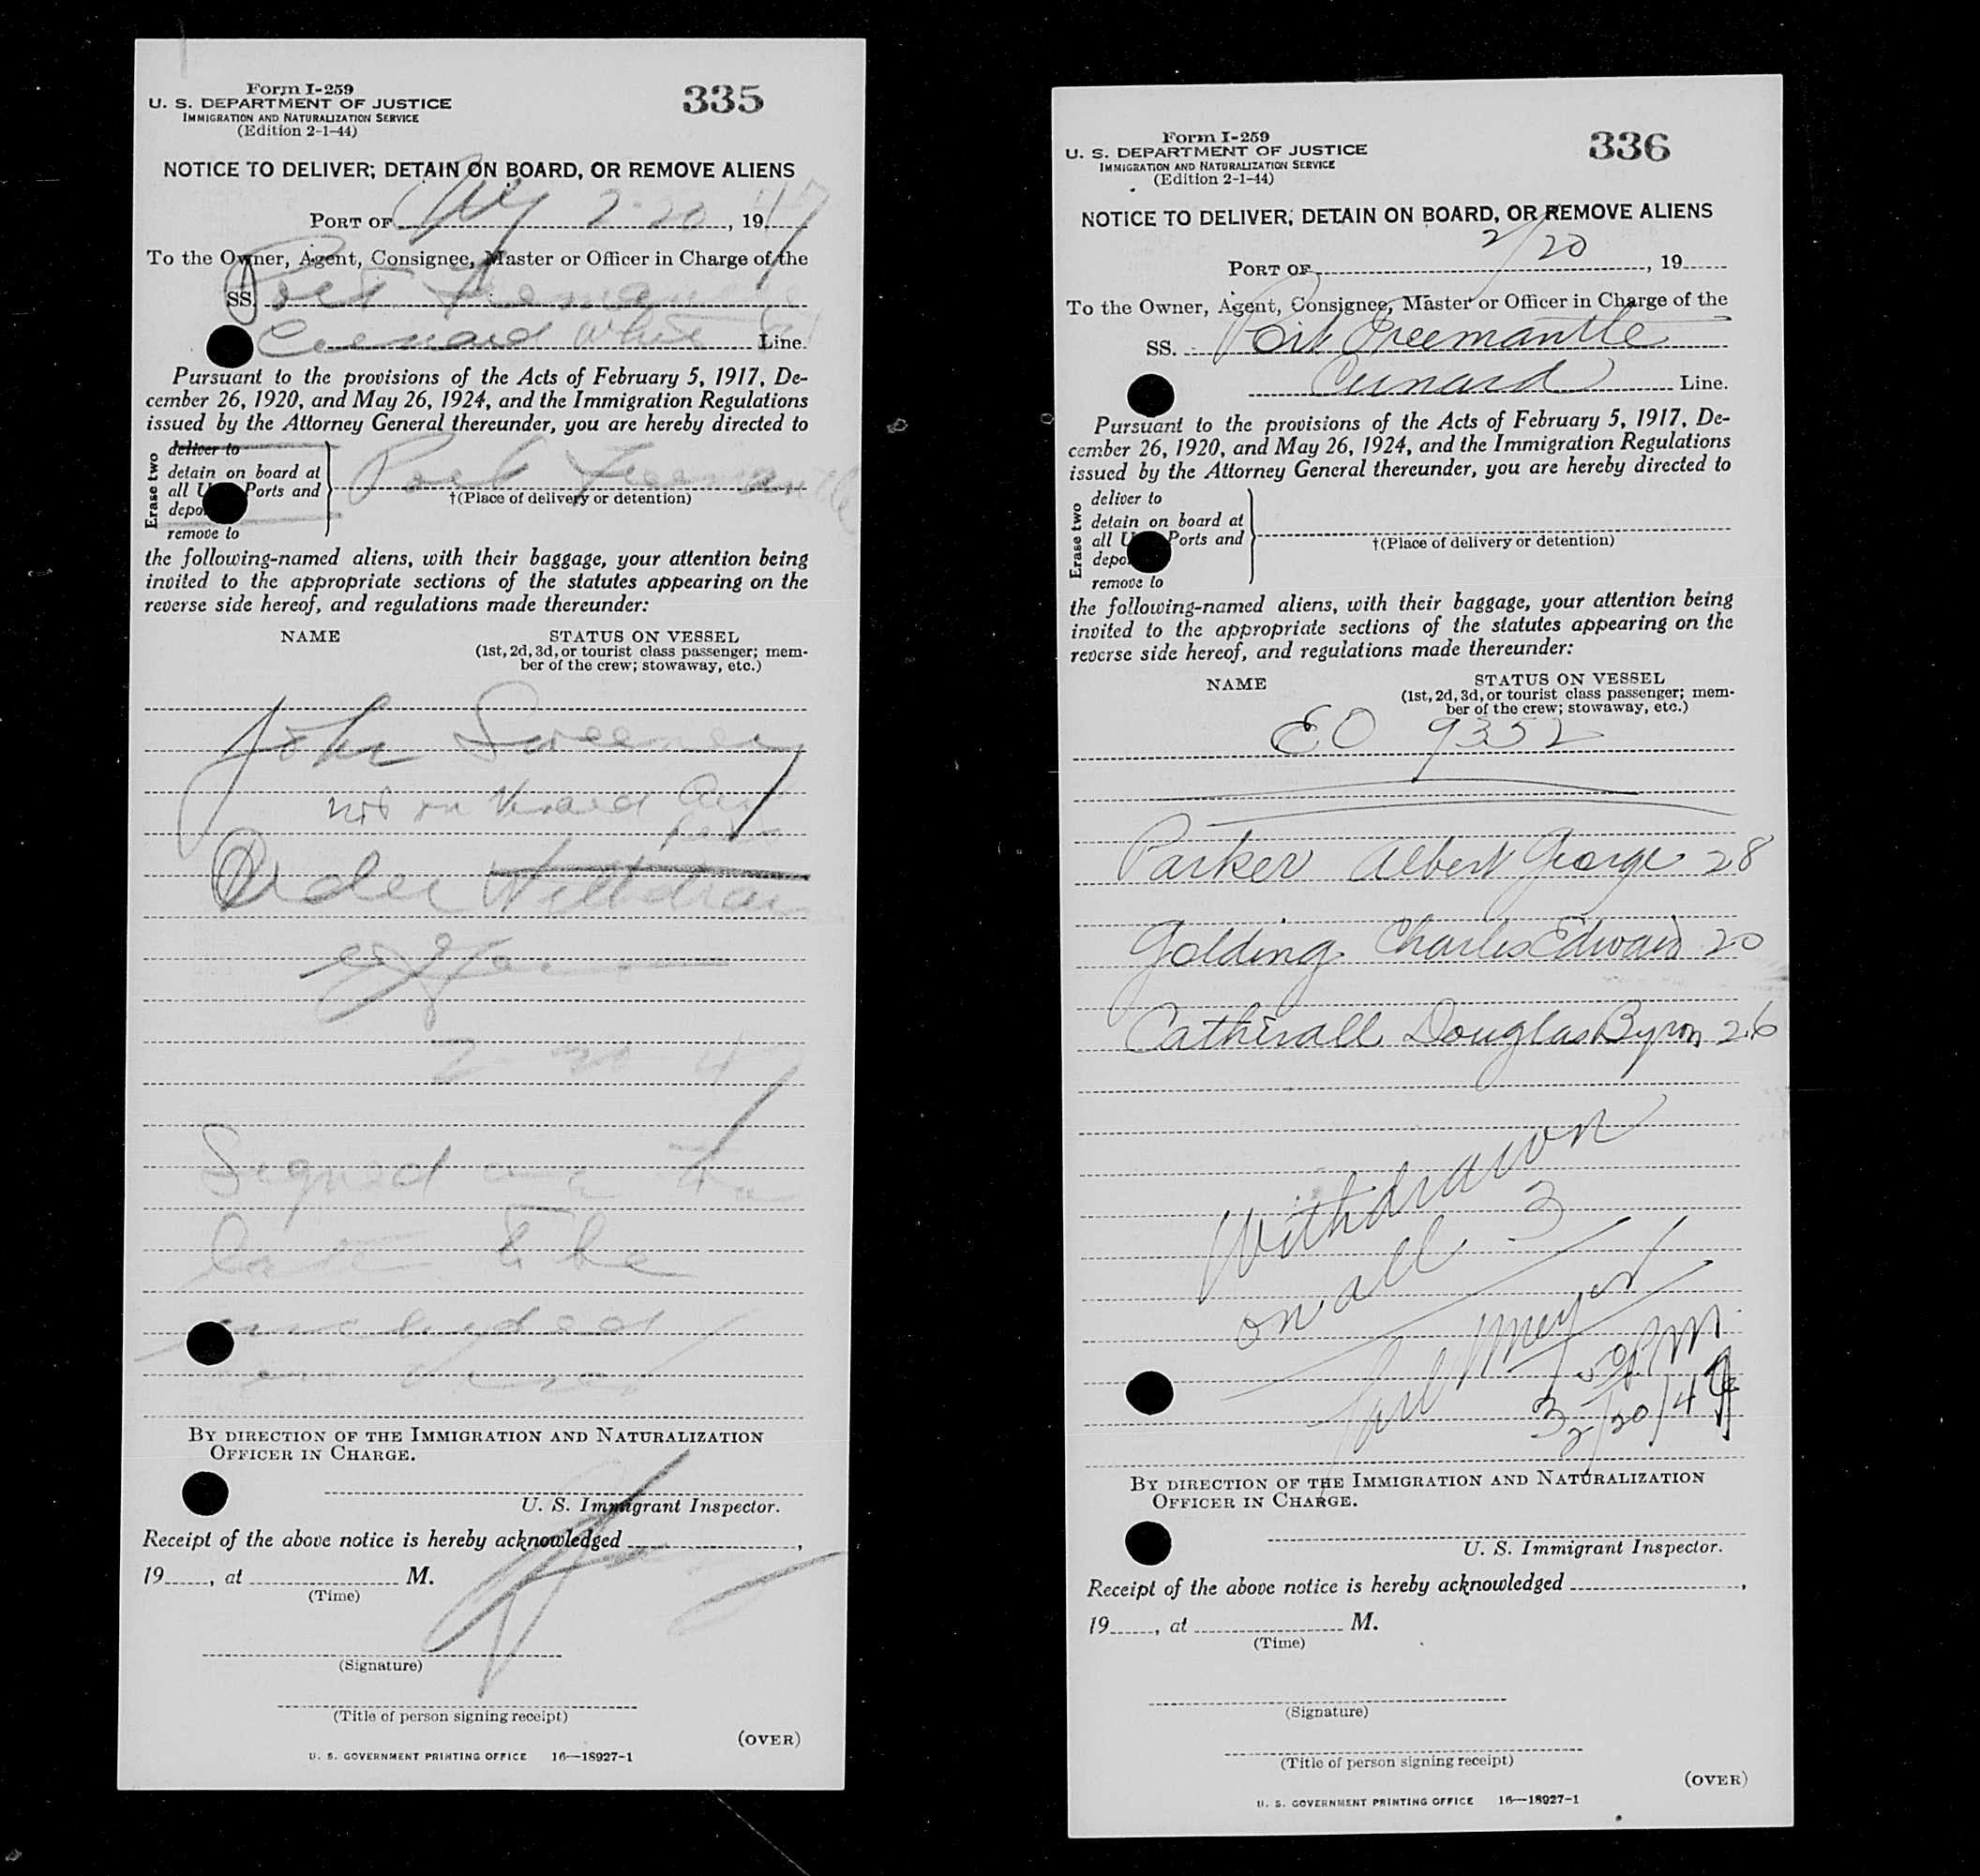 Form I-259
U. S. DEPARTMENT OF JUSTICE
IMMIGRATION AND NATURALIZATION SERVICE
(Edition 2-1-44)
335
NOTICE TO DELIVER; DETAIN ON BOARD, OR REMOVE ALIENS
PORT OF NY 2-20, 1947
To the Owner, Agent, Consignee, Master or Officer in Charge of the
SS. Port Freemantle
Cunard White Line.
Pursuant to the provisions of the Acts of February 5, 1917, De-
cember 26, 1920, and May 26, 1924, and the Immigration Regulations
issued by the Attorney General thereunder, you are hereby directed to
Erase two
deliver to
detain on board at
all U Ports and
depo
remove to
Port Freemantle
†(Place of delivery or detention)
the following-named aliens, with their baggage, your attention being
invited to the appropriate sections of the statutes appearing on the
reverse side hereof, and regulations made thereunder:
NAME STATUS ON VESSEL
(1st, 2d, 3d, or tourist class passenger; mem-
ber of the crew; stowaway, etc.)
John Sweeney
not on
Order Withdrawn
2 20 4
Signed
late to be
included
BY DIRECTION OF THE IMMIGRATION AND NATURALIZATION
OFFICER IN CHARGE.
U. S. Immigrant Inspector.
Receipt of the above notice is hereby acknowledged ,
19 , at M.
(Time)
(Signature)
(Title of person signing receipt)
(OVER)
U. S. GOVERNMENT PRINTING OFFICE 16—18927-1
Form I-259
U. S. DEPARTMENT OF JUSTICE
IMMIGRATION AND NATURALIZATION SERVICE
(Edition 2-1-44)
336
NOTICE TO DELIVER; DETAIN ON BOARD, OR REMOVE ALIENS
PORT OF 2/20, 19
To the Owner, Agent, Consignee, Master or Officer in Charge of the
SS. Port Freemantle
Cunard Line.
Pursuant to the provisions of the Acts of February 5, 1917, De-
cember 26, 1920, and May 26, 1924, and the Immigration Regulations
issued by the Attorney General thereunder, you are hereby directed to
Erase two
deliver to
detain on board at
all U Ports and
depo
remove to
†(Place of delivery or detention)
the following-named aliens, with their baggage, your attention being
invited to the appropriate sections of the statutes appearing on the
reverse side hereof, and regulations made thereunder:
NAME STATUS ON VESSEL
(1st, 2d, 3d, or tourist class passenger; mem-
ber of the crew; stowaway, etc.)
EO 9352
Parker Albert George 28
Golding Charles Edward 20
Catherall Douglas Byron 26
Withdrawn
on all 3
Meyer
3 50 PM
2/20/47
BY DIRECTION OF THE IMMIGRATION AND NATURALIZATION
OFFICER IN CHARGE.
U. S. Immigrant Inspector.
Receipt of the above notice is hereby acknowledged ,
19 , at M.
(Time)
(Signature)
(Title of person signing receipt)
(OVER)
U. S. GOVERNMENT PRINTING OFFICE 16—18927-1